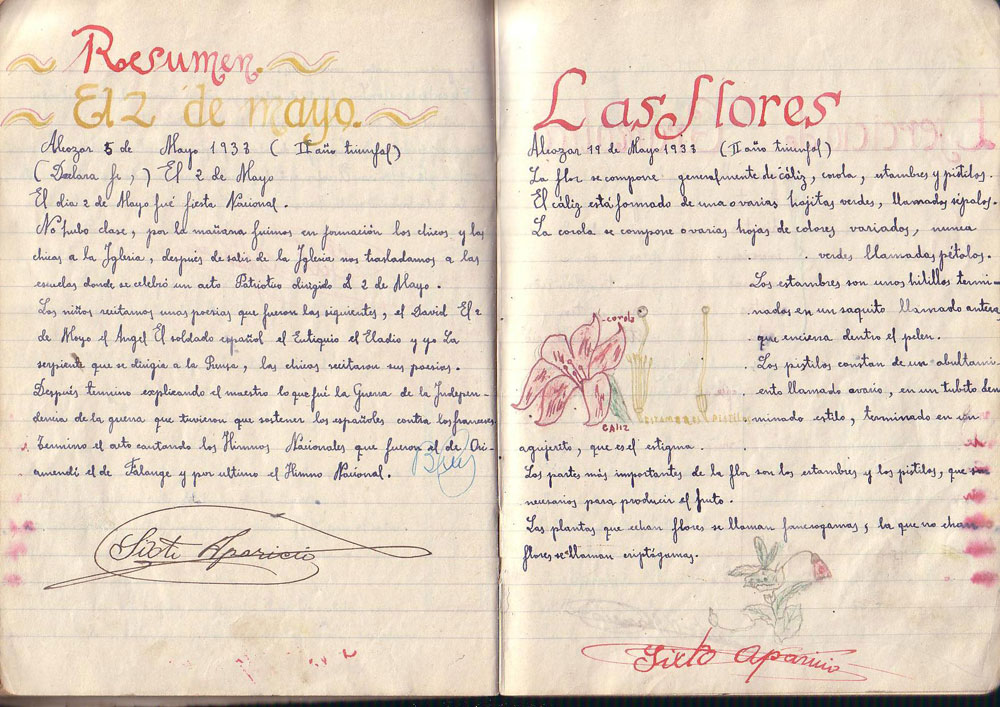 Resumen.
El 2 de mayo.
Alcozar 5 de Mayo 1933 ( II año triunfal)
( Declara fr, ) El 2 de Mayo
El dia 2 de Mayo fué fiesta Nacional.
No hubo clase, por la mañana fuimos en formación los chicos y las
chicas a la Iglesia, después de salir de la Iglesia nos trasladamos a las
escuelas donde se celebró un acto Patriotico dirigido L 2 de Mayo.
Los niños recitamos unas poesias que fueron las siguientes, el David El 2
de Mayo el Angel El soldado español el Eutiquio el Eladio y yo La
serpiente que se dirigia a la Prensa, las chicas recitaron sus poesias.
Después termino explicando el maestro lo que fué la Guerra de la Indepen-
dencia de la guerra que tuvieron que sostener los españoles contra los franceses.
Termino el acto cantando los Himnos Nacionales que fueron el de Ori-
amendi el de Falange y por ultimo el Himno Nacional.
Bien
Sixto Aparicio
Las flores
Alcozar 19 de Mayo 1933 (II año triunfal)
La flor se compone generalmente de cáliz, corola, estambres y pistilos.
El cáliz está formado de una o varias hojitas verdes, llamados sépalos.
La corola se compone o varias hojas de colores variados, nunca
verdes llamadas pétalos.
Los estambres son unos hilillos termi-
nados en un saquito llamado antera
que encierra dentro el polen.
Los pistilos constan de un abultami-
ento llamado ovario, en un tubito den
minado estilo, terminado en un
agujerito, que es el estigma.
corola
CALIZ
ESTAMBRES
PISTILO
Las partes más importantes de la flor son los estambres y los pistilos, que son
necesarios para producir el fruto.
Las plantas que echan flores se llaman fanerogamas, la que no echan
flores se llaman criptógamas.
Sixto Aparicio